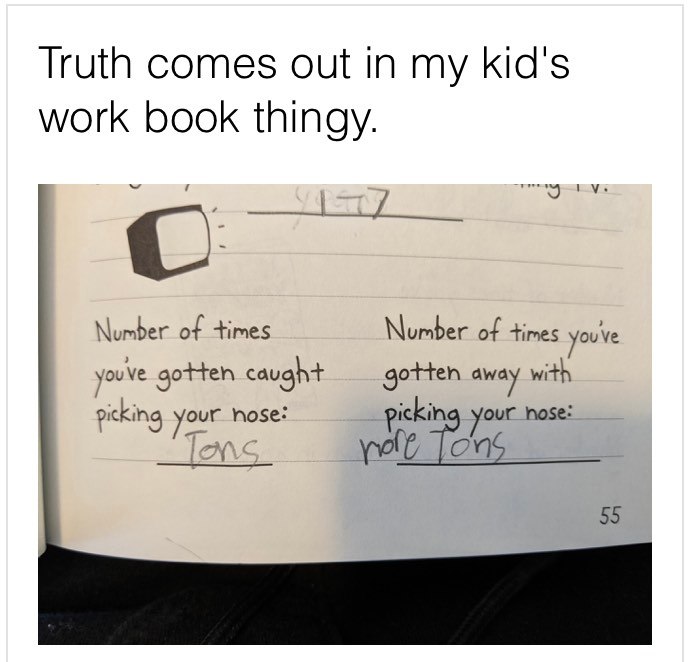 Truth comes out in my kid's
work book thingy.
Number of times
you've gotten caught
picking your nose:
Tons
Number of times you've
gotten away with
picking your nose:
more Tons
55